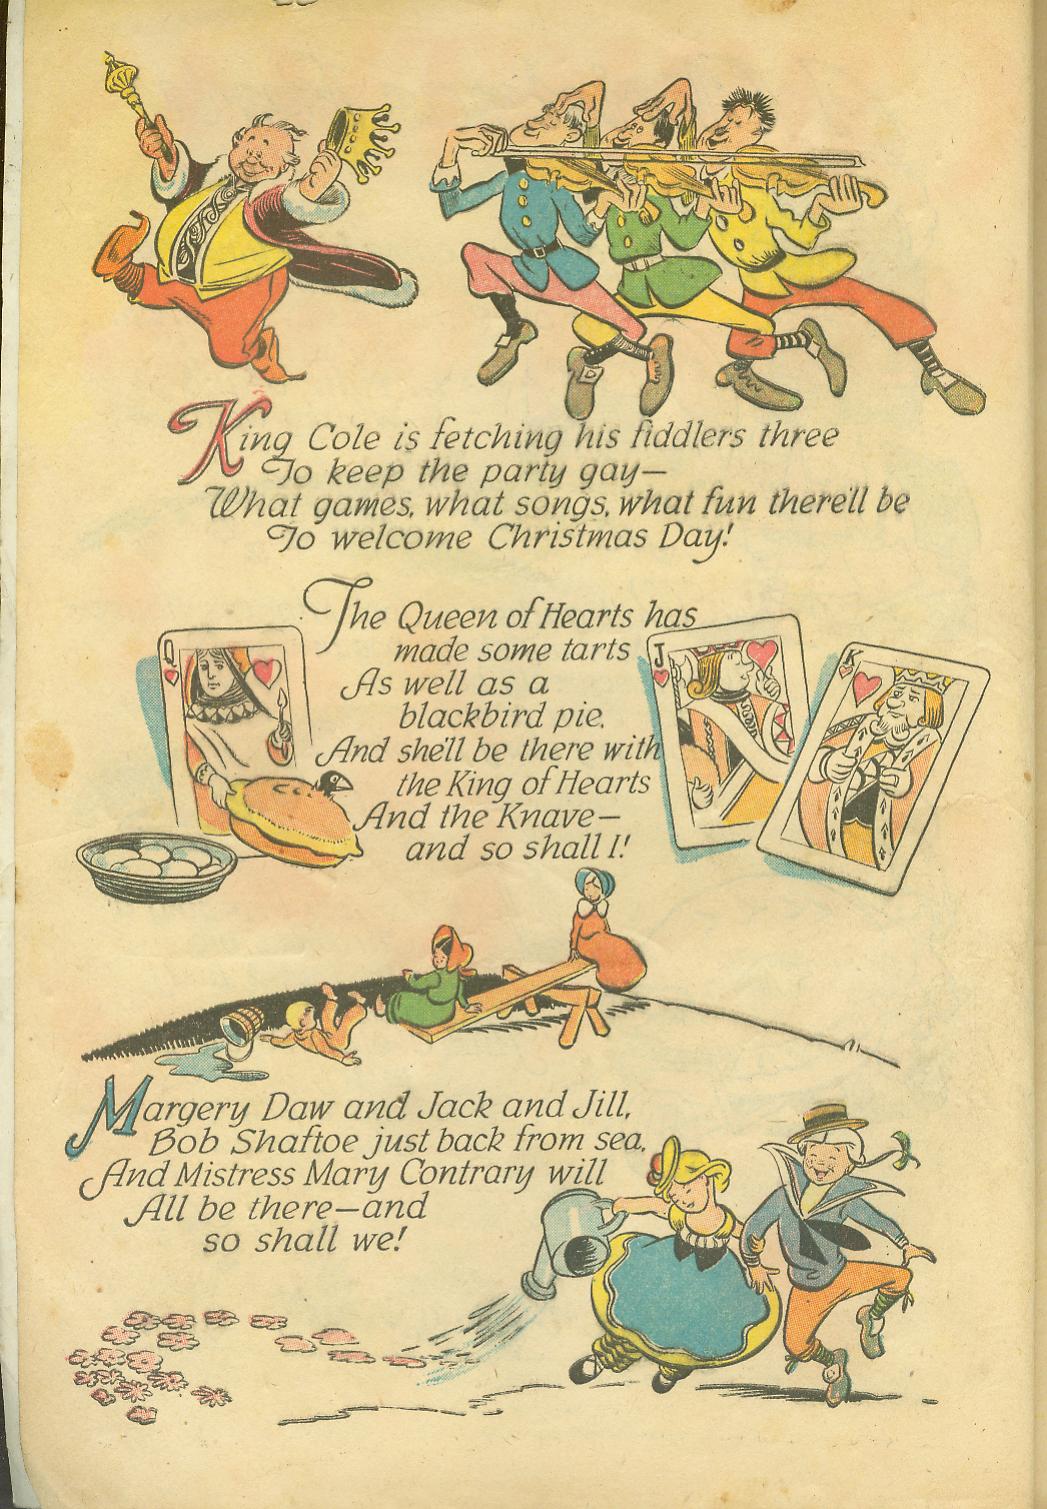 King Cole is fetching his fiddlers three
To keep the party gay—
What games, what songs, what fun there'll be
To welcome Christmas Day!
The Queen of Hearts has
made some tarts
As well as a
blackbird pie.
And she'll be there with
the King of Hearts
And the Knave—
and so shall I!
Q
J
K
Margery Daw and Jack and Jill,
Bob Shaftoe just back from sea,
And Mistress Mary Contrary will
All be there—and
so shall we!